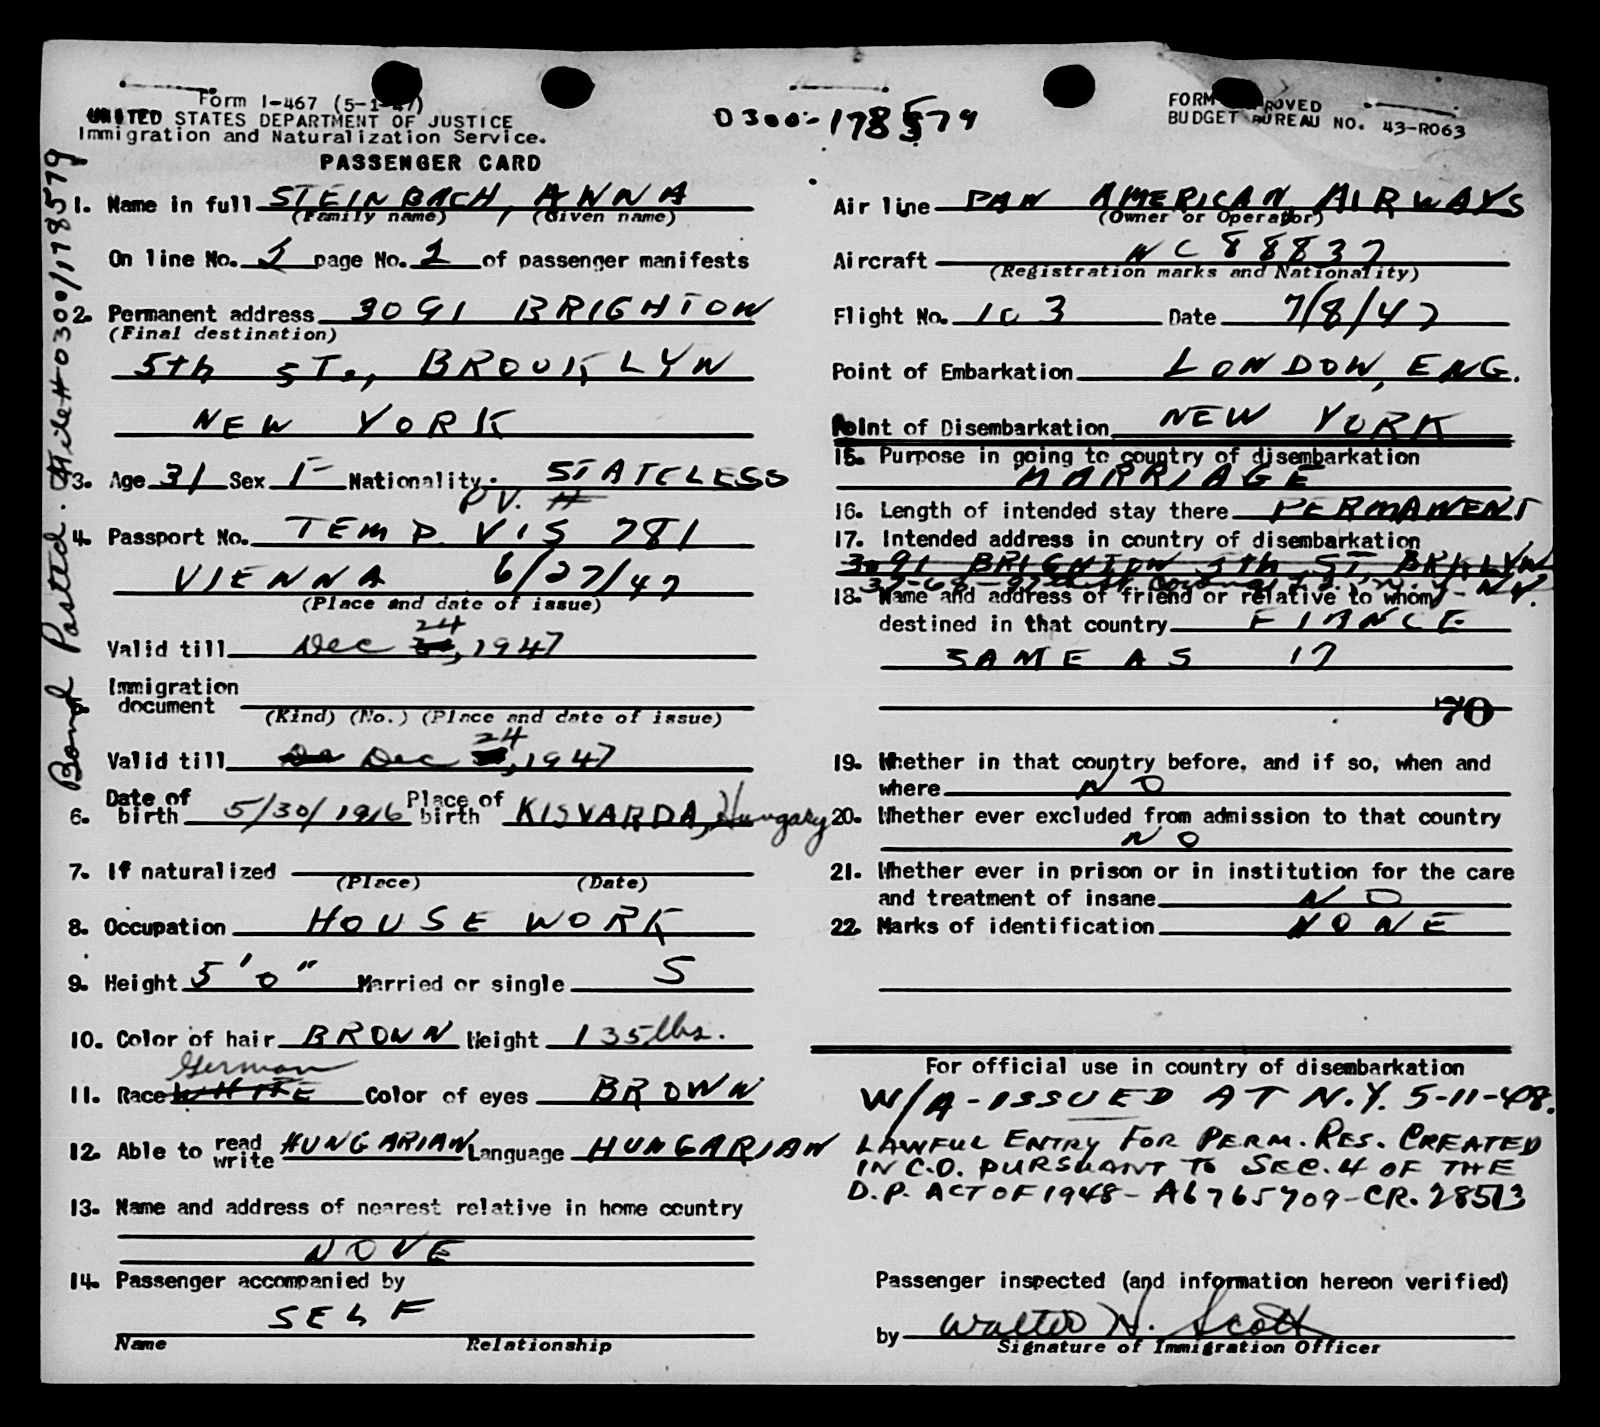 Form I-467 (5-1-47)
UNITED STATES DEPARTMENT OF JUSTICE
Immigration and Naturalization Service.
PASSENGER CARD
0300-178579
FORM APPROVED
BUDGET BUREAU NO. 43-R063
Bond Posted. File # 0300/178579
1. Name in full STEINBACH, ANNA
(Family name) (Given name)
On line No. 1 page No. 1 of passenger manifests
2. Permanent address 3091 BRIGHTON
(Final destination)
5th ST., BROOKLYN
NEW YORK
3. Age 31 Sex F Nationality. STATELESS
P.V. #
4. Passport No. TEMP VIS 781
VIENNA 6/27/47
(Place and date of issue)
24
Valid till Dec , 1947
Immigration
document
(Kind) (No.) (Place and date of issue)
24
Valid till De Dec , 1947
6. Date of birth 5/30/1916 Place of birth KISVARDA, Hungary
7. If naturalized
(Place) (Date)
8. Occupation HOUSE WORK
9. Height 5' 0" Married or single S
10. Color of hair BROWN Weight 135 lbs.
German
11. Race WHITE Color of eyes BROWN
12. Able to read write HUNGARIAN Language HUNGARIAN
13. Name and address of nearest relative in home country
NONE
14. Passenger accompanied by
SELF
Name Relationship
Air line PAN AMERICAN AIRWAYS
(Owner or Operator)
Aircraft NC 88837
(Registration marks and Nationality)
Flight No. 103 Date 7/8/47
Point of Embarkation LONDON, ENG.
Point of Disembarkation NEW YORK
15. Purpose in going to country of disembarkation
MARRIAGE
16. Length of intended stay there PERMANENT
17. Intended address in country of disembarkation
3091 BRIGHTON 5th ST. BRKLYN
37-68-97th St. Corona, L.I., N.Y. - NY.
18. Name and address of friend or relative to whom
destined in that country FIANCE
SAME AS 17
70
19. Whether in that country before, and if so, when and
where NO
20. Whether ever excluded from admission to that country
NO
21. Whether ever in prison or in institution for the care
and treatment of insane NO
22. Marks of identification NONE
For official use in country of disembarkation
W/A-ISSUED AT N.Y. 5-11-48.
LAWFUL ENTRY FOR PERM. RES. CREATED
IN C.O. PURSUANT TO SEC. 4 OF THE
D.P. ACT OF 1948 - A6765709-CR. 28513
Passenger inspected (and information hereon verified)
by Walter H. Scott
Signature of Immigration Officer